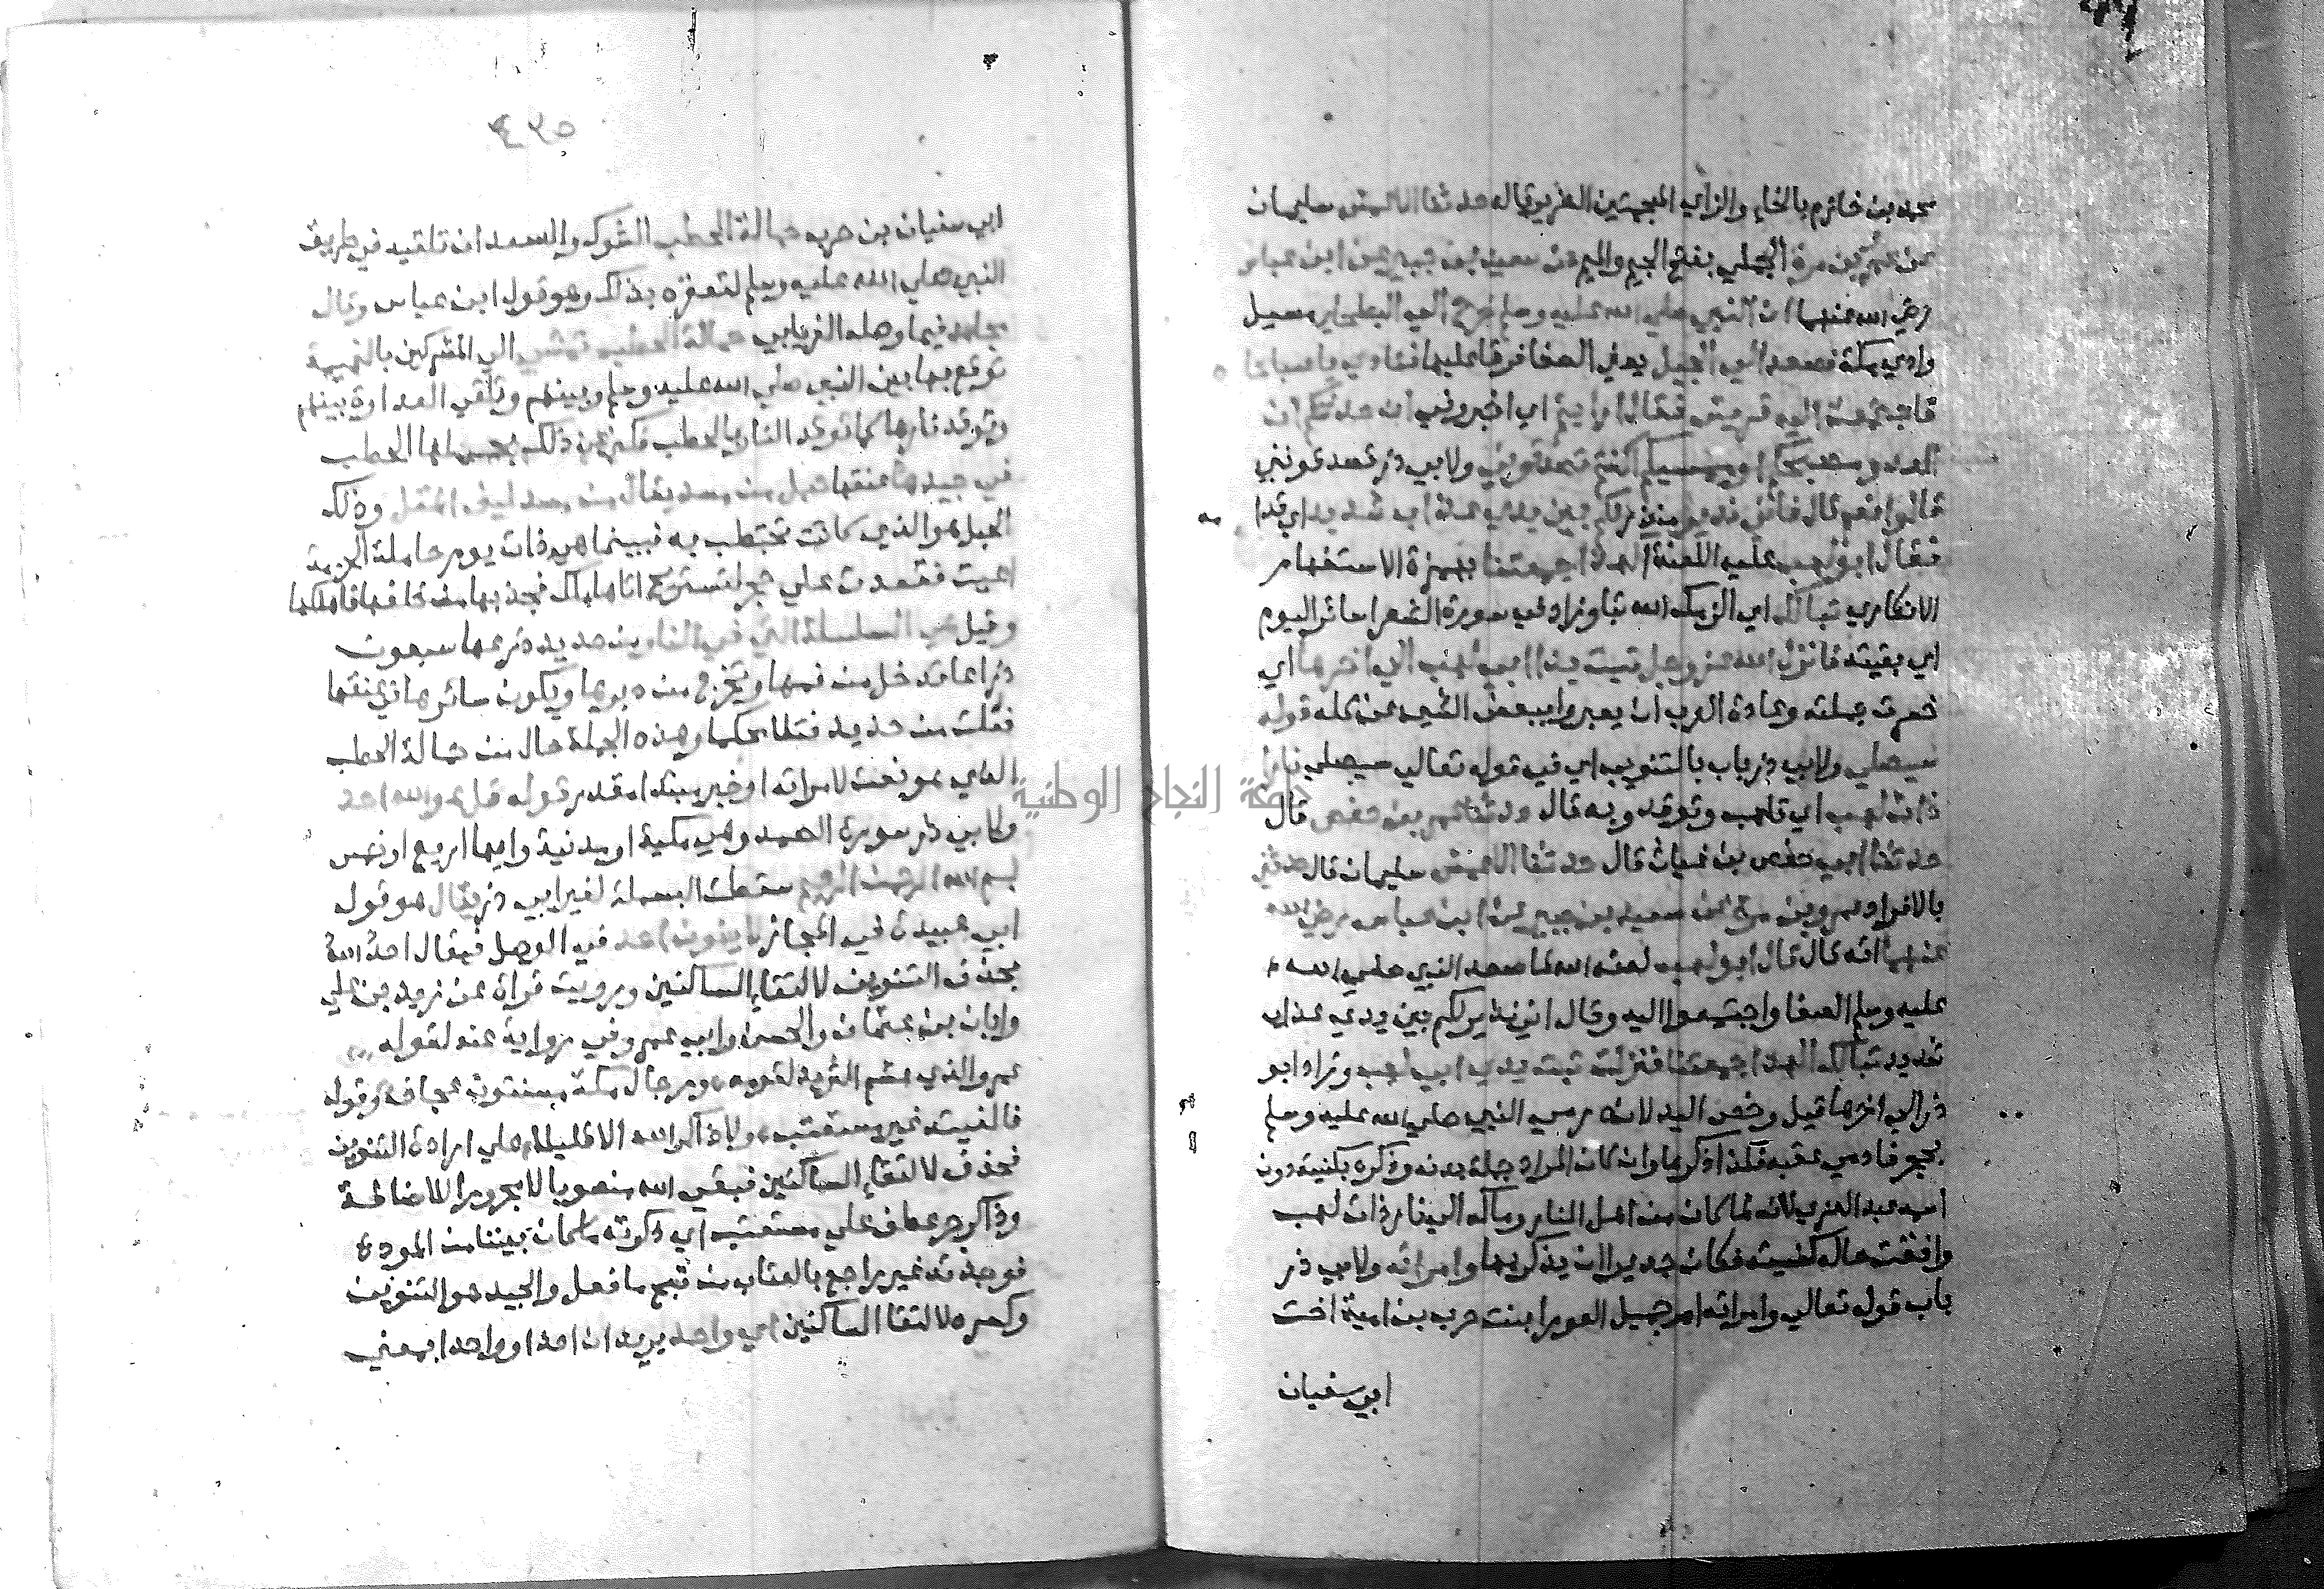 محمد بن خازم بالخاء والزاي المعجمتين الضرير قال حدثنا الاعمش سليمان
عن عمرو بن مرة الجملي بفتح الجيم والميم عن سعيد بن جبير عن ابن عباس
رضي الله عنهما ان النبي صلي الله عليه وسلم خرج الي البطحا مسيل
وادي مكة فصعد الي الجبل يعني الصفا فرقا عليها فنادي يا صباحاه
فاجتمعت اليه قريش فقال ارايتم اي اخبروني ان حدثتكم ان
العدو مصبحكم او ممسيكم اكنتم تصدقوني ولابي ذر تصدقونني
قالوا نعم قال فاني نذير لكم بين يدي عذاب شديد اي قدام
فقال ابو لهب عليه اللعنة الهذا جمعتنا بهمزة الاستفهام
الانكاري تبا لك اي الزمك الله تبا وزاد في سورة الشعرا سائر اليوم
اي بقيته فانزل الله عز وجل تبت يدا ابي لهب الي اخرها اي
خسرت جملته وعادة العرب ان يعبروا ببعض الشي عن كله قوله
سيصلي ولابي ذر باب بالتنوين اي في قوله تعالي سيصلي نارا
ذات لهب اي تلهب وتوقد وبه قال حدثنا عمر بن حفص قال
حدثنا ابي حفص بن غياث قال حدثنا الاعمش سليمان قال حدثني
بالافراد عمرو بن مرة عن سعيد بن جبير عن ابن عباس رضي الله
عنهما انه قال قال ابو لهب لعنه الله لما صعد النبي صلي الله
عليه وسلم الصفا واجتمعوا اليه وقال اني نذير لكم بين يدي عذاب
شديد تبا لك الهذا جمعتنا فنزلت تبت يدا ابي لهب وزاد ابو
ذر الي اخرها قيل وخص اليد لانه رمي النبي صلي الله عليه وسلم
بحجر فادمي عقبه فلذا ذكرها وان كان المراد جملة بدنه وذكره بكنيته دون
اسمه عبد العزي لانه لما كان من اهل النار وماله الي نار ذات لهب
وافقت حاله كنيته فكان جديرا ان يذكر بها وامراته ولابي ذر
باب قوله تعالي وامراته ام جميل العورا بنت حرب بن امية اخت
ابي سفيان
٤٣٥
ابي سفيان بن حرب حمالة الحطب الشوك والسعدان تلقيه في طريق
النبي صلي الله عليه وسلم لتعقره بذلك وهو قول ابن عباس وقال
مجاهد فيما وصله الفريابي حمالة الحطب تمشي الي المشركين بالنميمة
توقع بها بين النبي صلي الله عليه وسلم وبينهم وتلقي العداوة بينهم
وتوقد نارها كما توقد النار بالحطب فكني عن ذلك بحملها الحطب
في جيدها عنقها حبل من مسد يقال من مسد ليف المقل وذلك
الحبل هو الذي كانت تحتطب به فبينما هي ذات يوم حاملة الحزمة
اعيت فقعدت علي حجر لتستريح اتاها ملك فجذبها من خلفها فاهلكها
وقيل هي السلسلة التي في النار من حديد ذرعها سبعون
ذراعا تدخل من فيها وتخرج من دبرها ويكون سائرها في عنقها
فتلت من حديد فتلا محكما وهذه الجملة حال من حمالة الحطب
الذي هو نعت لامراته او خبر مبتدا مقدر قوله قل هو الله احد
ولابي ذر سورة الصمد وهي مكية او مدنية وايها اربع او خمس
بسم الله الرحمن الرحيم سقطت البسملة لغير ابي ذر يقال هو قول
ابي عبيدة في المجاز لا ينون احد في الوصل فيقال احد الله
بحذف التنوين لالتقاء الساكنين ورويت قراة عن زيد بن علي
وابان بن عثمان والحسن وابي عمرو في رواية عنه لقوله
عمرو الذي هشم الثريد لقومه ورجال مكة مسنتون عجاف وقوله
فالفيته غير مستعتب ولا ذاكر الله الا قليلا علي ارادة التنوين
فحذف لالتقاء الساكنين فبقي الله منصوبا لا مجرورا للاضافة
وذاكر جر عطف علي مستعتب اي ذكرته ما كان بيننا من المودة
فوجدته غير راجع بالعتاب من قبح ما فعل والجيد هو التنوين
وكسره لالتقا الساكنين اي واحد يريد ان احدا وواحدا بمعني
جامعة النجاح الوطنية